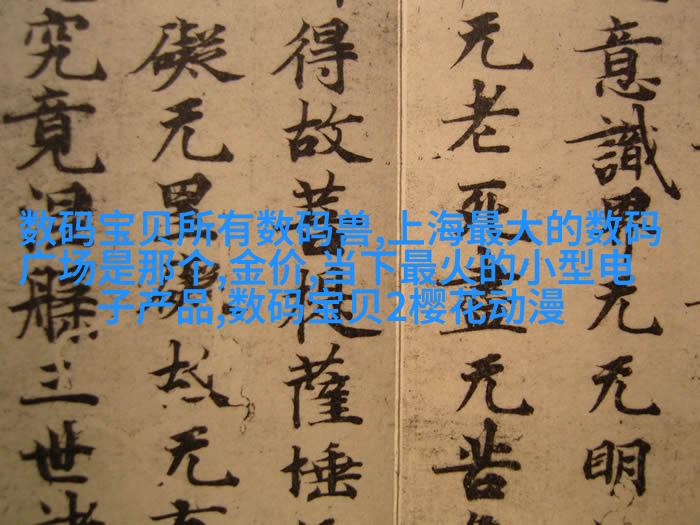 数码宝贝所有数码兽,上海最大的数码
广场是那个,金价,当下最火的小型电
子产品,数码宝贝2樱花动漫
意識界无无明
无老死盡无苦
得故菩提薩埵
礙无罣礙故无有
究竟涅槃三世諸